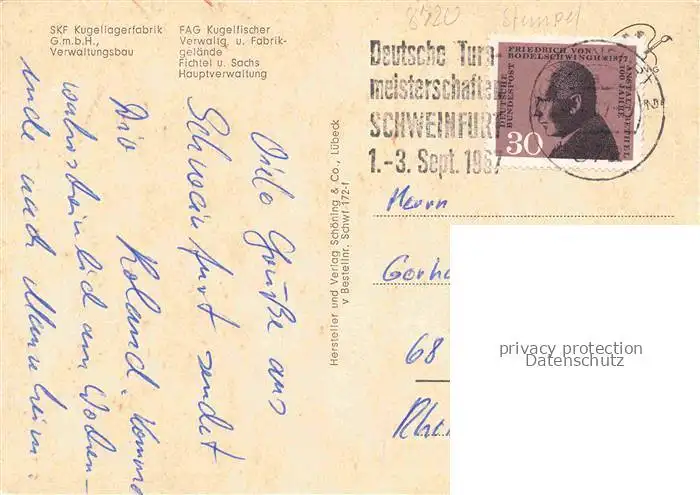 SKF Kugellagerfabrik
G.m.b.H.,
Verwaltungsbau
FAG Kugelfischer
Verwaltg. u. Fabrik-
gelände
Fichtel u. Sachs
Hauptverwaltung
8720 Stempel
Deutsche Turn-
meisterschaften
SCHWEINFURT
1.-3. Sept. 1967
FRIEDRICH VON
BODELSCHWINGH † 1877
DEUTSCHE
BUNDESPOST
ANSTALT BETHEL
100 JAHRE
30
Viele Grüße aus
Schweinfurt sendet
Dir Roland. Komme
wahrscheinlich am Wochen-
ende nach Mannheim.
Hersteller und Verlag Schöning & Co., Lübeck
v Bestellnr. Schwf 172-f
Herrn
Gerha
68
Rhei
privacy protection
Datenschutz